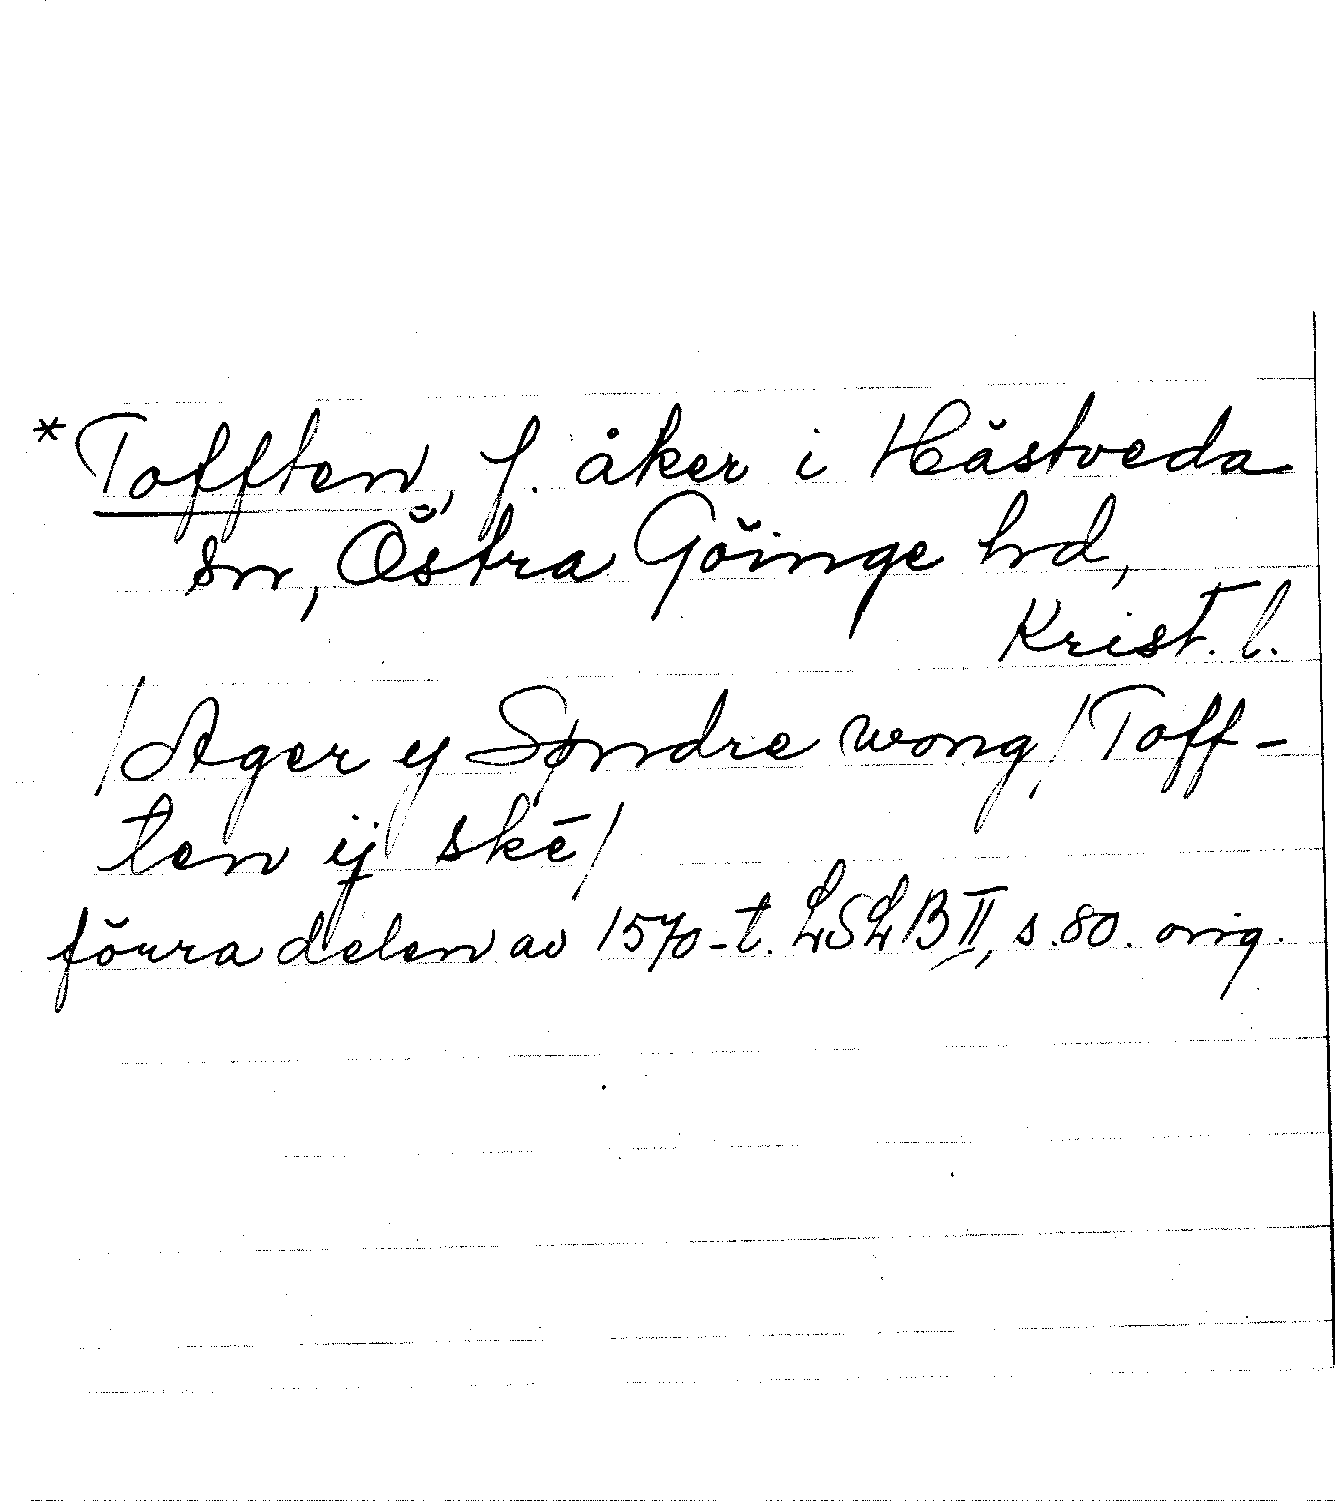 *Tofften, f. åker i Hästveda
sn, Östra Göinge hd,
Krist. l.
/Ager y Søndre wong/ Toff-
ten ij skē/
förra delen av 1570-t. LSLB II, s. 80. orig.